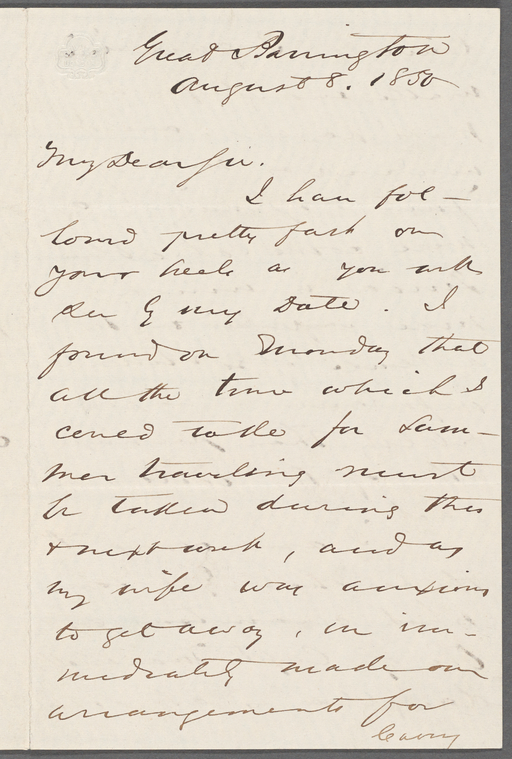 Great Barrington
August 8. 1850
My Dear Sir.
I have fol-
lowed pretty fast on
your heels as you will
see by my Date. I
found on Monday that
all the time which I
could take for Sum-
mer travelling must
be taken during this
& next week, and as
my wife was anxious
to get away, we im-
mediately made our
arrangements for
leaving